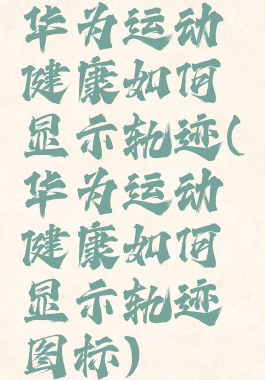 华为运动
健康如何
显示轨迹(
华为运动
健康如何
显示轨迹
图标)